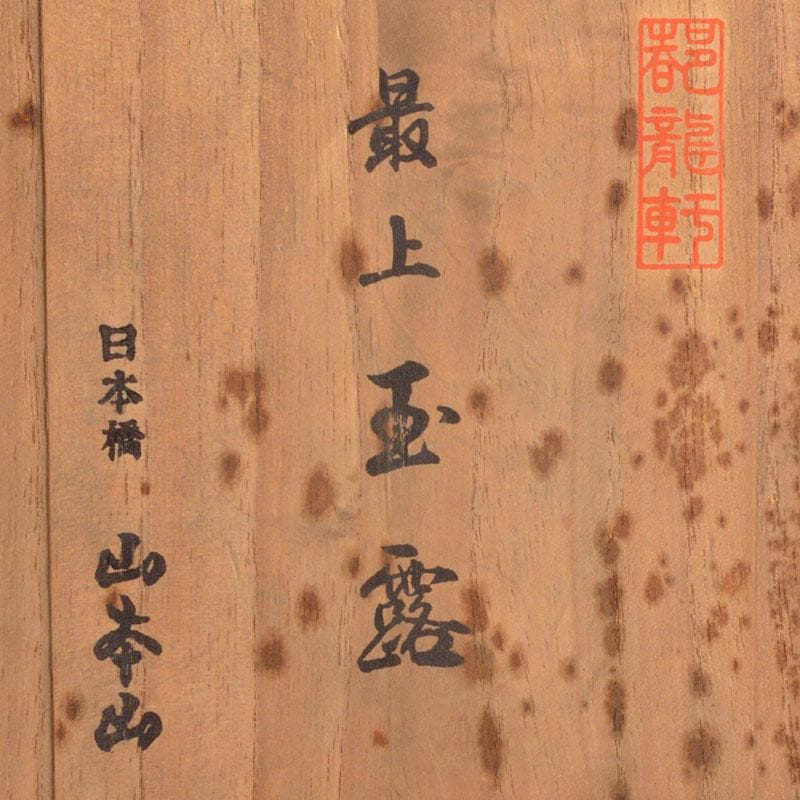 都龍軒
最上玉露
日本橋
山本山